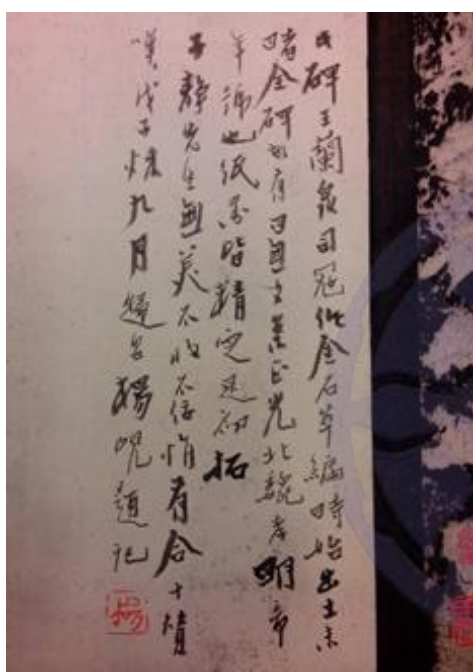 此碑王蘭泉司寇作金石萃編時始出土未
睹全碑故有曰無文義正光北魏孝明帝
年號也紙墨皆精定是初拓
子靜先生無美不收不徒惟有合十讚
嘆戊子秋九月藐翁楊峴題記